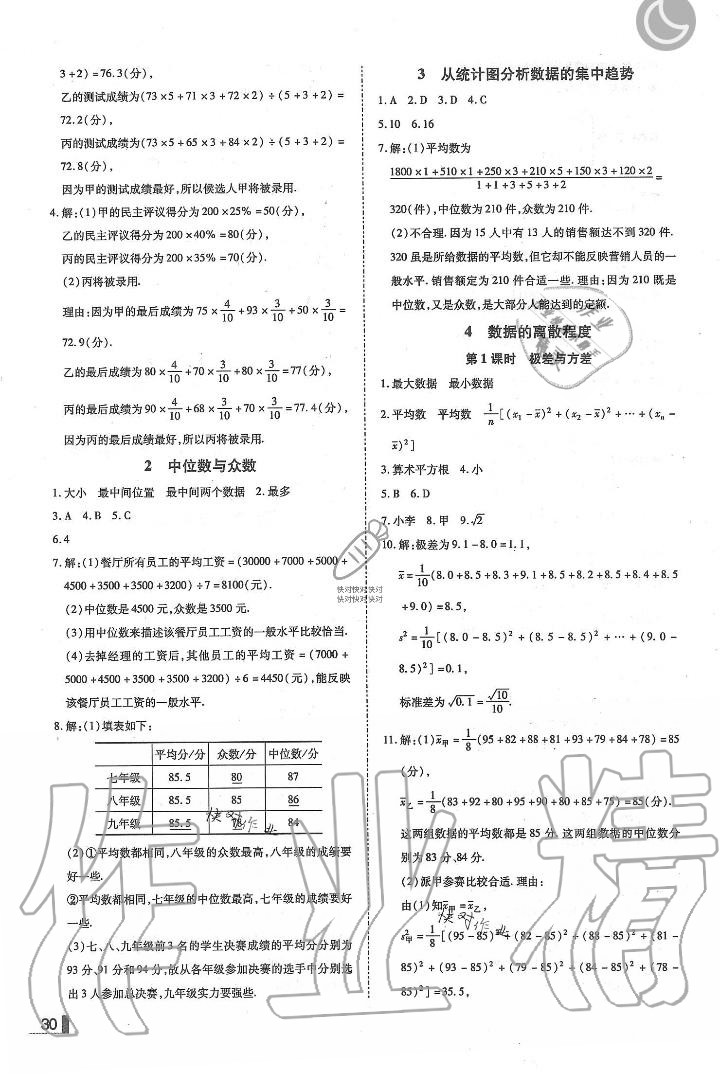 3+2)=76.3(分),
乙的测试成绩为(73×5+71×3+72×2)÷(5+3+2)=
72.2(分),
丙的测试成绩为(73×5+65×3+84×2)÷(5+3+2)=
72.8(分),
因为甲的测试成绩最好,所以候选人甲将被录用.
4.解:(1)甲的民主评议得分为200×25%=50(分),
乙的民主评议得分为200×40%=80(分),
丙的民主评议得分为200×35%=70(分).
(2)丙将被录用.
理由:因为甲的最后成绩为75×4/10+93×3/10+50×3/10=
72.9(分).
乙的最后成绩为80×4/10+70×3/10+80×3/10=77(分),
丙的最后成绩为90×4/10+68×3/10+70×3/10=77.4(分),
因为丙的最后成绩最好,所以丙将被录用.
2 中位数与众数
1.大小 最中间位置 最中间两个数据 2.最多
3.A 4.B 5.C
6.4
7.解:(1)餐厅所有员工的平均工资=(30000+7000+5000+
4500+3500+3500+3200)÷7=8100(元).
(2)中位数是4500元,众数是3500元.
(3)用中位数来描述该餐厅员工工资的一般水平比较恰当.
(4)去掉经理的工资后,其他员工的平均工资=(7000+
5000+4500+3500+3500+3200)÷6=4450(元),能反映
该餐厅员工工资的一般水平.
8.解:(1)填表如下:
平均分/分 众数/分 中位数/分
七年级 85.5 80 87
八年级 85.5 85 86
九年级 85.5 78 84
(2)①平均数都相同,八年级的众数最高,八年级的成绩要
好一些.
②平均数都相同,七年级的中位数最高,七年级的成绩要好
一些.
(3)七、八、九年级前3名的学生决赛成绩的平均分分别为
93分、91分和94分,故从各年级参加决赛的选手中分别选
出3人参加总决赛,九年级实力要强些.
30
3 从统计图分析数据的集中趋势
1.A 2.D 3.D 4.C
5.10 6.16
7.解:(1)平均数为
(1800×1+510×1+250×3+210×5+150×3+120×2)/(1+1+3+5+3+2)=
320(件),中位数为210件,众数为210件.
(2)不合理.因为15人中有13人的销售额达不到320件.
320虽是所给数据的平均数,但它却不能反映营销人员的一
般水平.销售额定为210件合适一些.理由:因为210既是
中位数,又是众数,是大部分人能达到的定额.
4 数据的离散程度
第1课时 极差与方差
1.最大数据 最小数据
2.平均数 平均数 1/n[(x₁-x̄)²+(x₂-x̄)²+…+(xₙ-
x̄)²]
3.算术平方根 4.小
5.B 6.D
7.小李 8.甲 9.√2
10.解:极差为9.1-8.0=1.1,
x̄=1/10(8.0+8.5+8.3+9.1+8.5+8.2+8.5+8.4+8.5
+9.0)=8.5,
s²=1/10[(8.0-8.5)²+(8.5-8.5)²+…+(9.0-
8.5)²]=0.1,
标准差为√0.1=√10/10.
11.解:(1)x̄甲=1/8(95+82+88+81+93+79+84+78)=85
(分),
x̄乙=1/8(83+92+80+95+90+80+85+75)=85(分).
这两组数据的平均数都是85分.这两组数据的中位数分
别为83分、84分.
(2)派甲参赛比较合适.理由:
由(1)知x̄甲=x̄乙,
s²甲=1/8[(95-85)²+(82-85)²+(88-85)²+(81-
85)²+(93-85)²+(79-85)²+(84-85)²+(78-
85)²]=35.5,
快对快对快对
快对快对快对
快对作业
快对作业
作业精